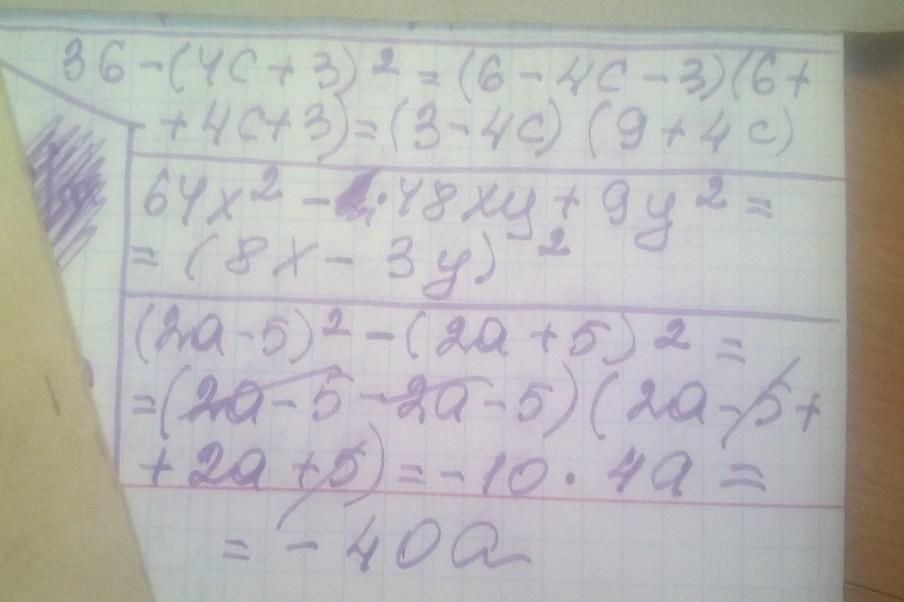 36-(4c+3)² = (6-4c-3)(6+
+4c+3)=(3-4c) (9+4c)
64x² - 48xy + 9y² =
= (8x - 3y)²
(2a-5)² - (2a+5)² =
=(2a-5-2a-5)(2a-5+
+2a+5)=-10·4a=
= -40a